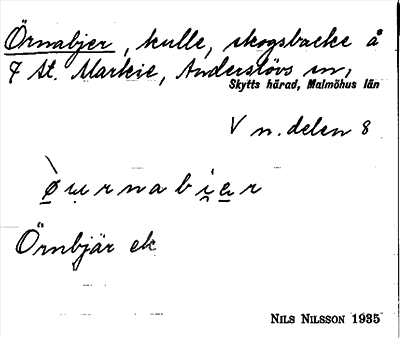 Örnabjer, kulle, skogsbacke å
7 St. Markie, Anderslövs sn,
Skytts härad, Malmöhus län
V n. delen 8
Örnbjär ek
NILS NILSSON 1935